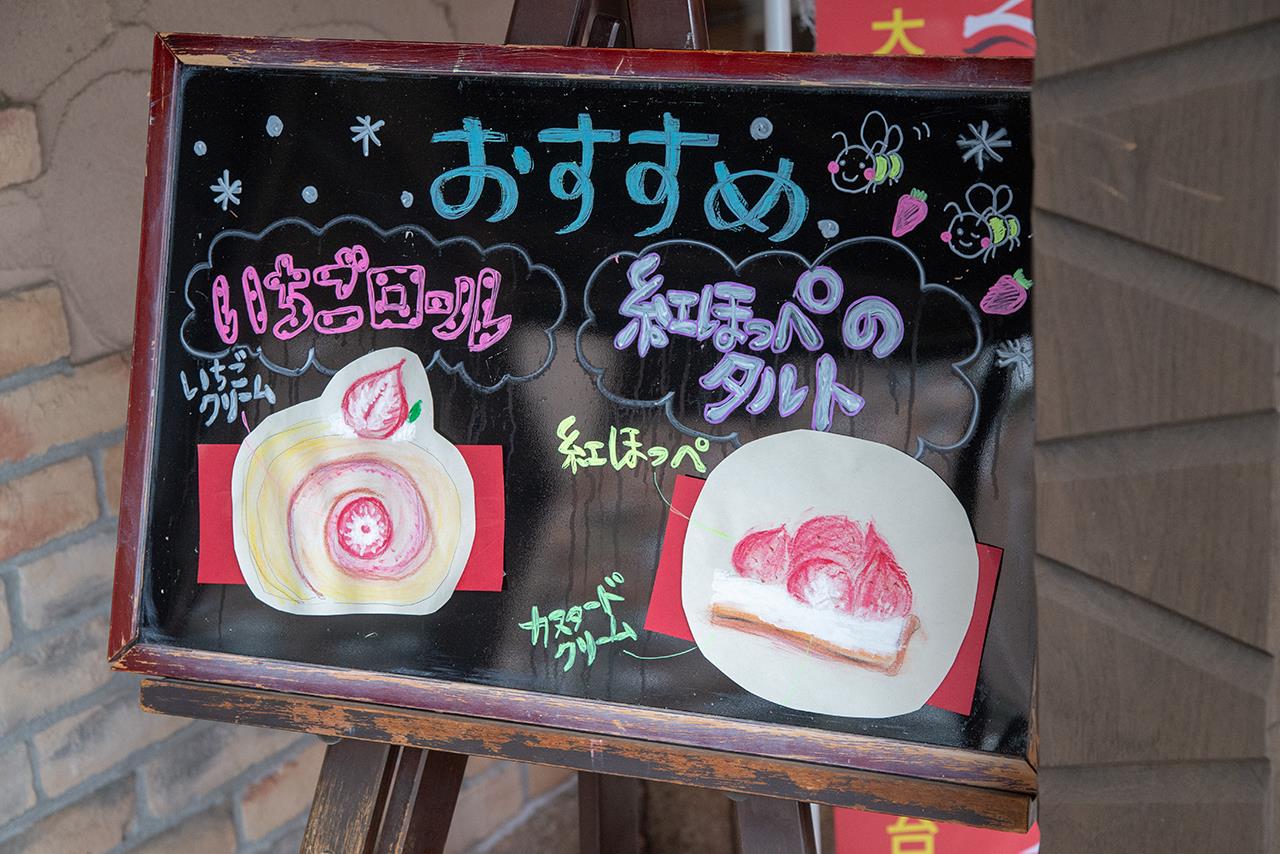 大
おすすめ
いちごロール
いちご
クリーム
紅ほっぺの
タルト
紅ほっぺ
カスタード
クリーム
台